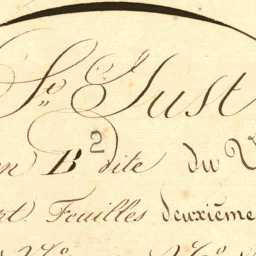 St. Just
B dite du
2
Feuilles deuxième